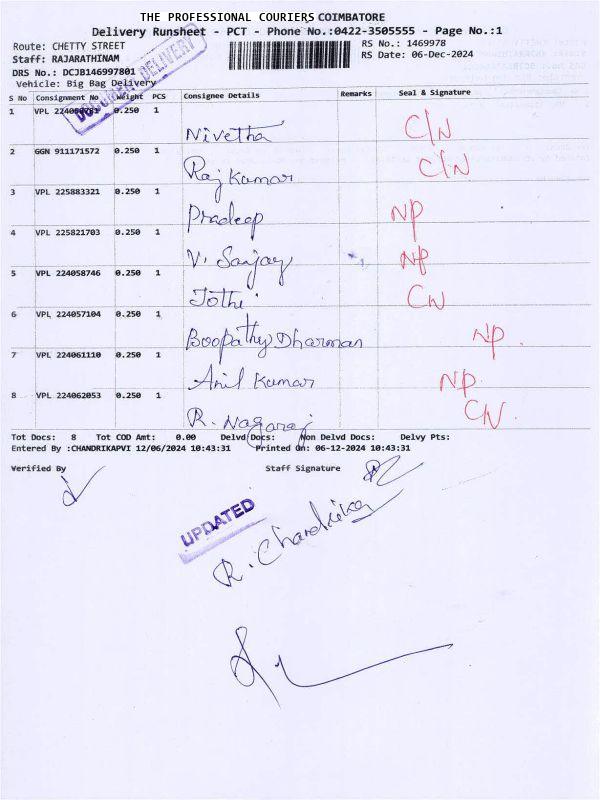 THE PROFESSIONAL COURIERS COIMBATORE
Delivery Runsheet - PCT - Phone No.:0422-3505555 - Page No.:1
Route: CHETTY STREET RS No.: 1469978
Staff: RAJARATHINAM RS Date: 06-Dec-2024
DRS No.: DCJB146997801
DOCUMENT DELIVERY
Vehicle: Big Bag Delivery
S No Consignment No Weight PCS Consignee Details Remarks Seal & Signature
1 VPL 0.250 1 Nivetha C/N
2 GGN 911171572 0.250 1 Raj Kumar C/N
3 VPL 225883321 0.250 1 Pradeep NP
4 VPL 225821703 0.250 1 V. Sanjay NP
5 VPL 224058746 0.250 1 Jothi CN
6 VPL 224057104 0.250 1 Boopathy Dharman NP.
7 VPL 224061110 0.250 1 Anil Kumar NP.
8 VPL 224062053 0.250 1 R. Nagaraj CN.
Tot Docs: 8 Tot COD Amt: 0.00 Delvd Docs: Non Delvd Docs: Delvy Pts:
Entered By :CHANDRIKAPVI 12/06/2024 10:43:31 Printed On: 06-12-2024 10:43:31
Verified By Staff Signature
UPDATED
R. Chandrika